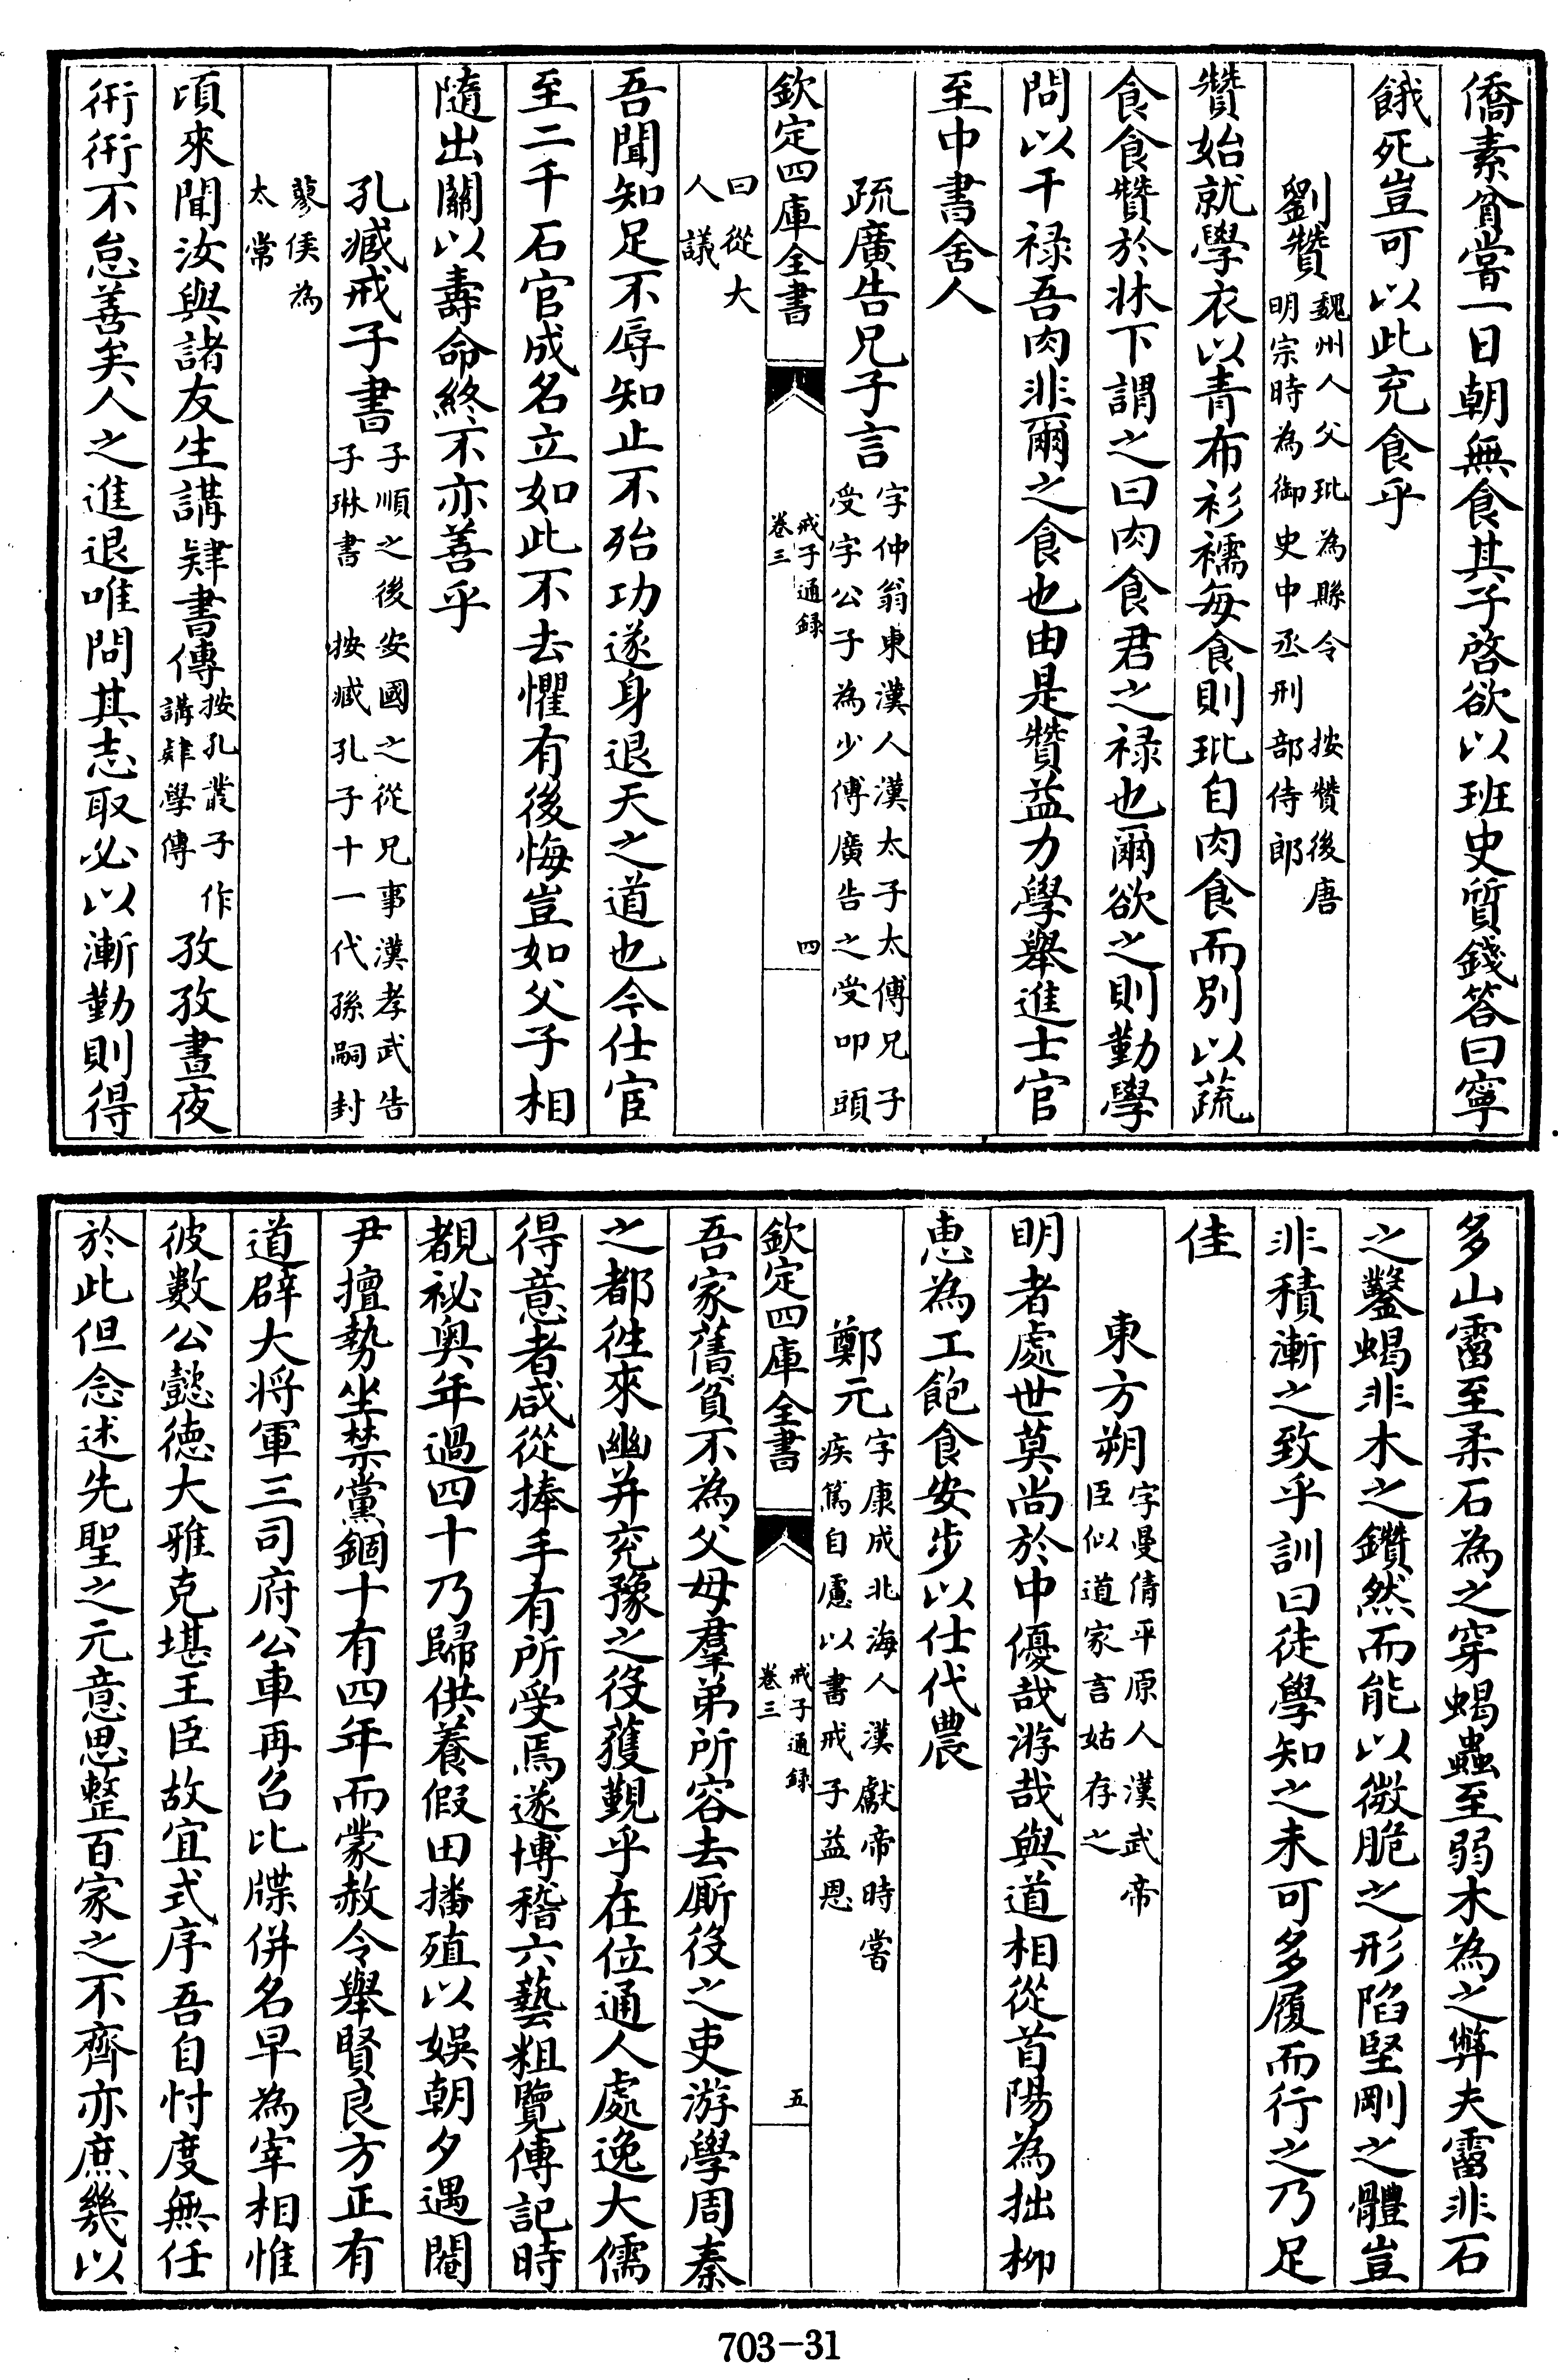 僑素貧嘗一日朝無食其子啓欲以班史質錢答曰寧
餓死豈可以此充食乎
劉贊魏州人父玭為縣令 按贊後唐
明宗時為御史中丞刑部侍郎
贊始就學衣以青布衫襦每食則玭自肉食而别以蔬
食食贊於牀下謂之曰肉食君之禄也爾欲之則勤學
問以干禄吾肉非爾之食也由是贊益力學舉進士官
至中書舍人
疏廣告兄子言字仲翁東漢人漢太子太傅兄子
受字公子為少傅廣告之受叩頭
欽定四庫全書
戒子通録
卷三
四
曰從大
人議
吾聞知足不辱知止不殆功遂身退天之道也今仕宦
至二千石官成名立如此不去懼有後悔豈如父子相
隨出關以壽命終不亦善乎
孔臧戒子書子順之後安國之從兄事漢孝武告
子琳書 按臧孔子十一代孫嗣封
蓼侯為
太常
頃來聞汝與諸友生講肄書傳按孔叢子作
講肄學傳孜孜晝夜
衎衎不怠善矣人之進退唯問其志取必以漸勤則得
多山霤至柔石為之穿蝎蟲至弱木為之弊夫霤非石
之鑿蝎非木之鑽然而能以微脆之形陷堅剛之體豈
非積漸之致乎訓曰徒學知之未可多履而行之乃足
佳
東方朔字曼倩平原人漢武帝
臣似道家言姑存之
明者處世莫尚於中優哉游哉與道相從首陽為拙柳
惠為工飽食安步以仕代農
鄭元字康成北海人漢獻帝時嘗
疾篤自慮以書戒子益恩
欽定四庫全書
戒子通録
卷三
五
吾家舊貧不為父母羣弟所容去厮役之吏游學周秦
之都徃來幽并兖豫之役獲覲乎在位通人處逸大儒
得意者咸從捧手有所受焉遂博稽六藝粗覽傳記時
覩祕奥年過四十乃歸供養假田播殖以娯朝夕遇閹
尹擅勢坐禁黨錮十有四年而蒙赦令舉賢良方正有
道辟大將軍三司府公車再召比牒併名早為宰相惟
彼數公懿徳大雅克堪王臣故宜式序吾自忖度無任
於此但念述先聖之元意思整百家之不齊亦庶幾以
703-31